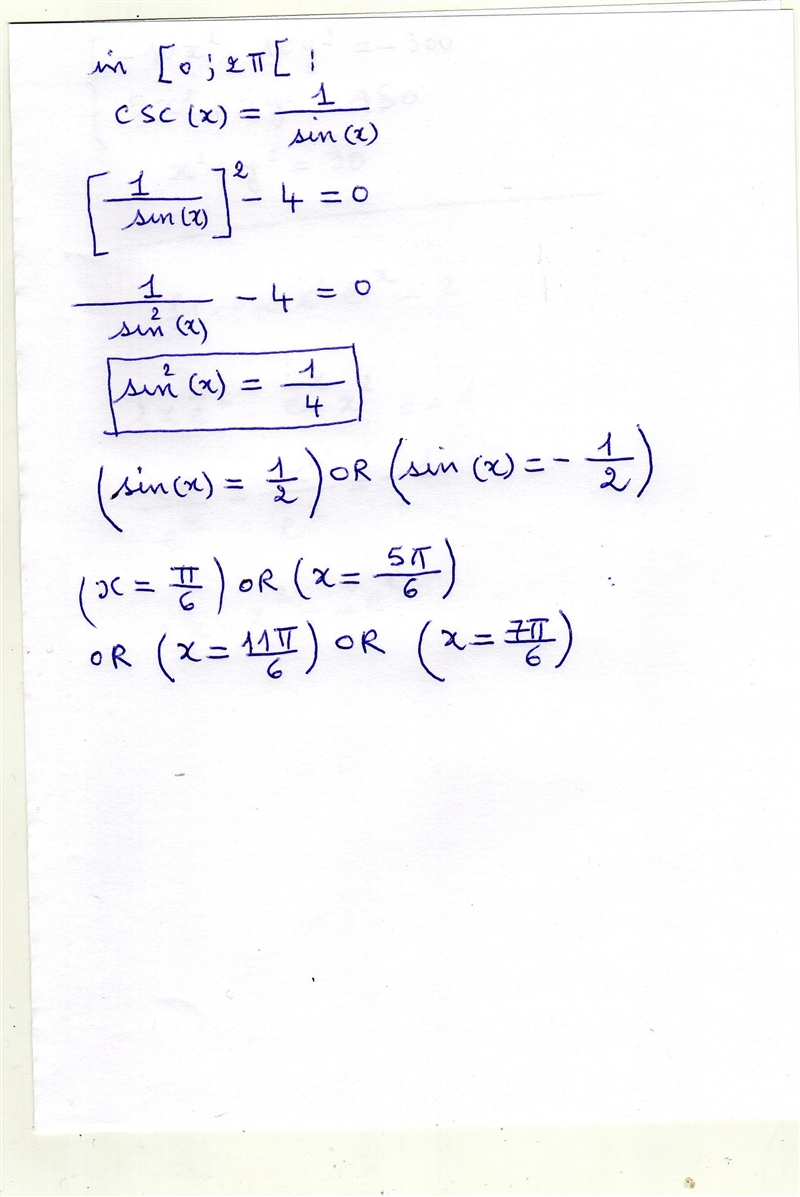 in [0 ; 2π[ :
csc(x) = 1/sin(x)
[1/sin(x)]² - 4 = 0
1/sin²(x) - 4 = 0
sin²(x) = 1/4
(sin(x) = 1/2) OR (sin(x) = - 1/2)
(x = π/6) OR (x = 5π/6)
OR (x = 11π/6) OR (x = 7π/6)